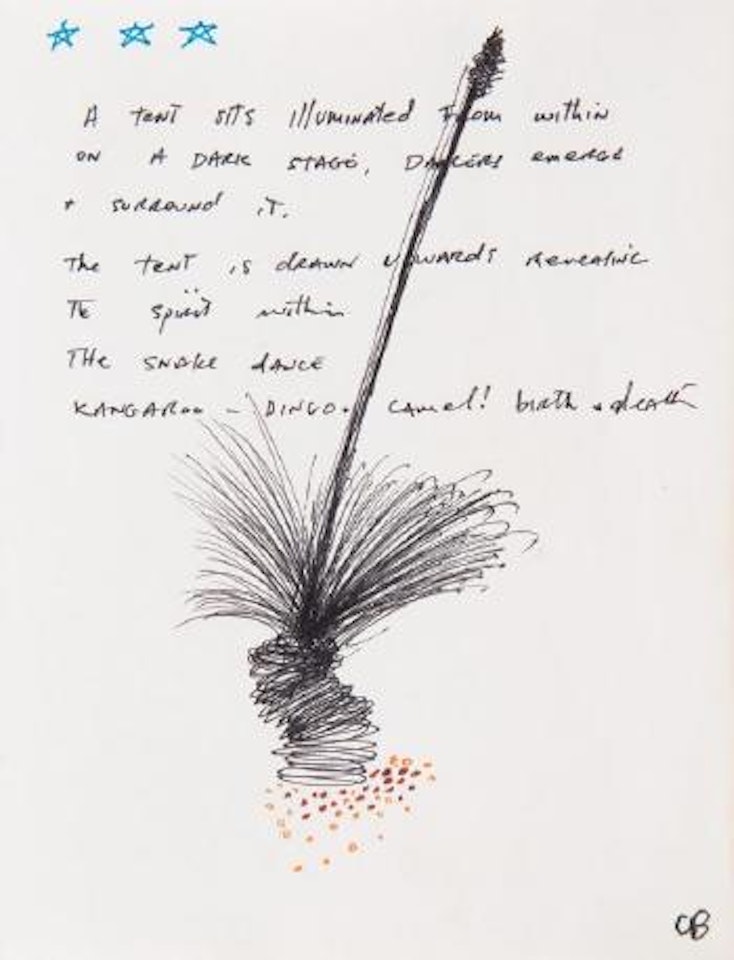 A tent sits illuminated from within
on A DARK STAGE, DANCERS emerge
+ SURROUND IT.
The tent is drawn upwards revealing
The spirit within
THE SNAKE dance
KANGAROO - DINGO. camel! birth + death